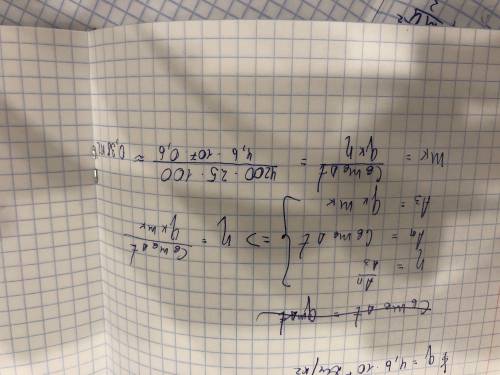 q = 4,6 · 10⁷ Дж/кг
c_в m_в Δt = q_к m_к
η = Aп/Aз
Aп = c_в m_в Δt
Aз = q_к m_к
=> η = c_в m_в Δt / q_к m_к
m_к = c_в m_в Δt / q_к η = 4200 · 25 · 100 / 4,6 · 10⁷ · 0,6 ≈ 0,38 кг